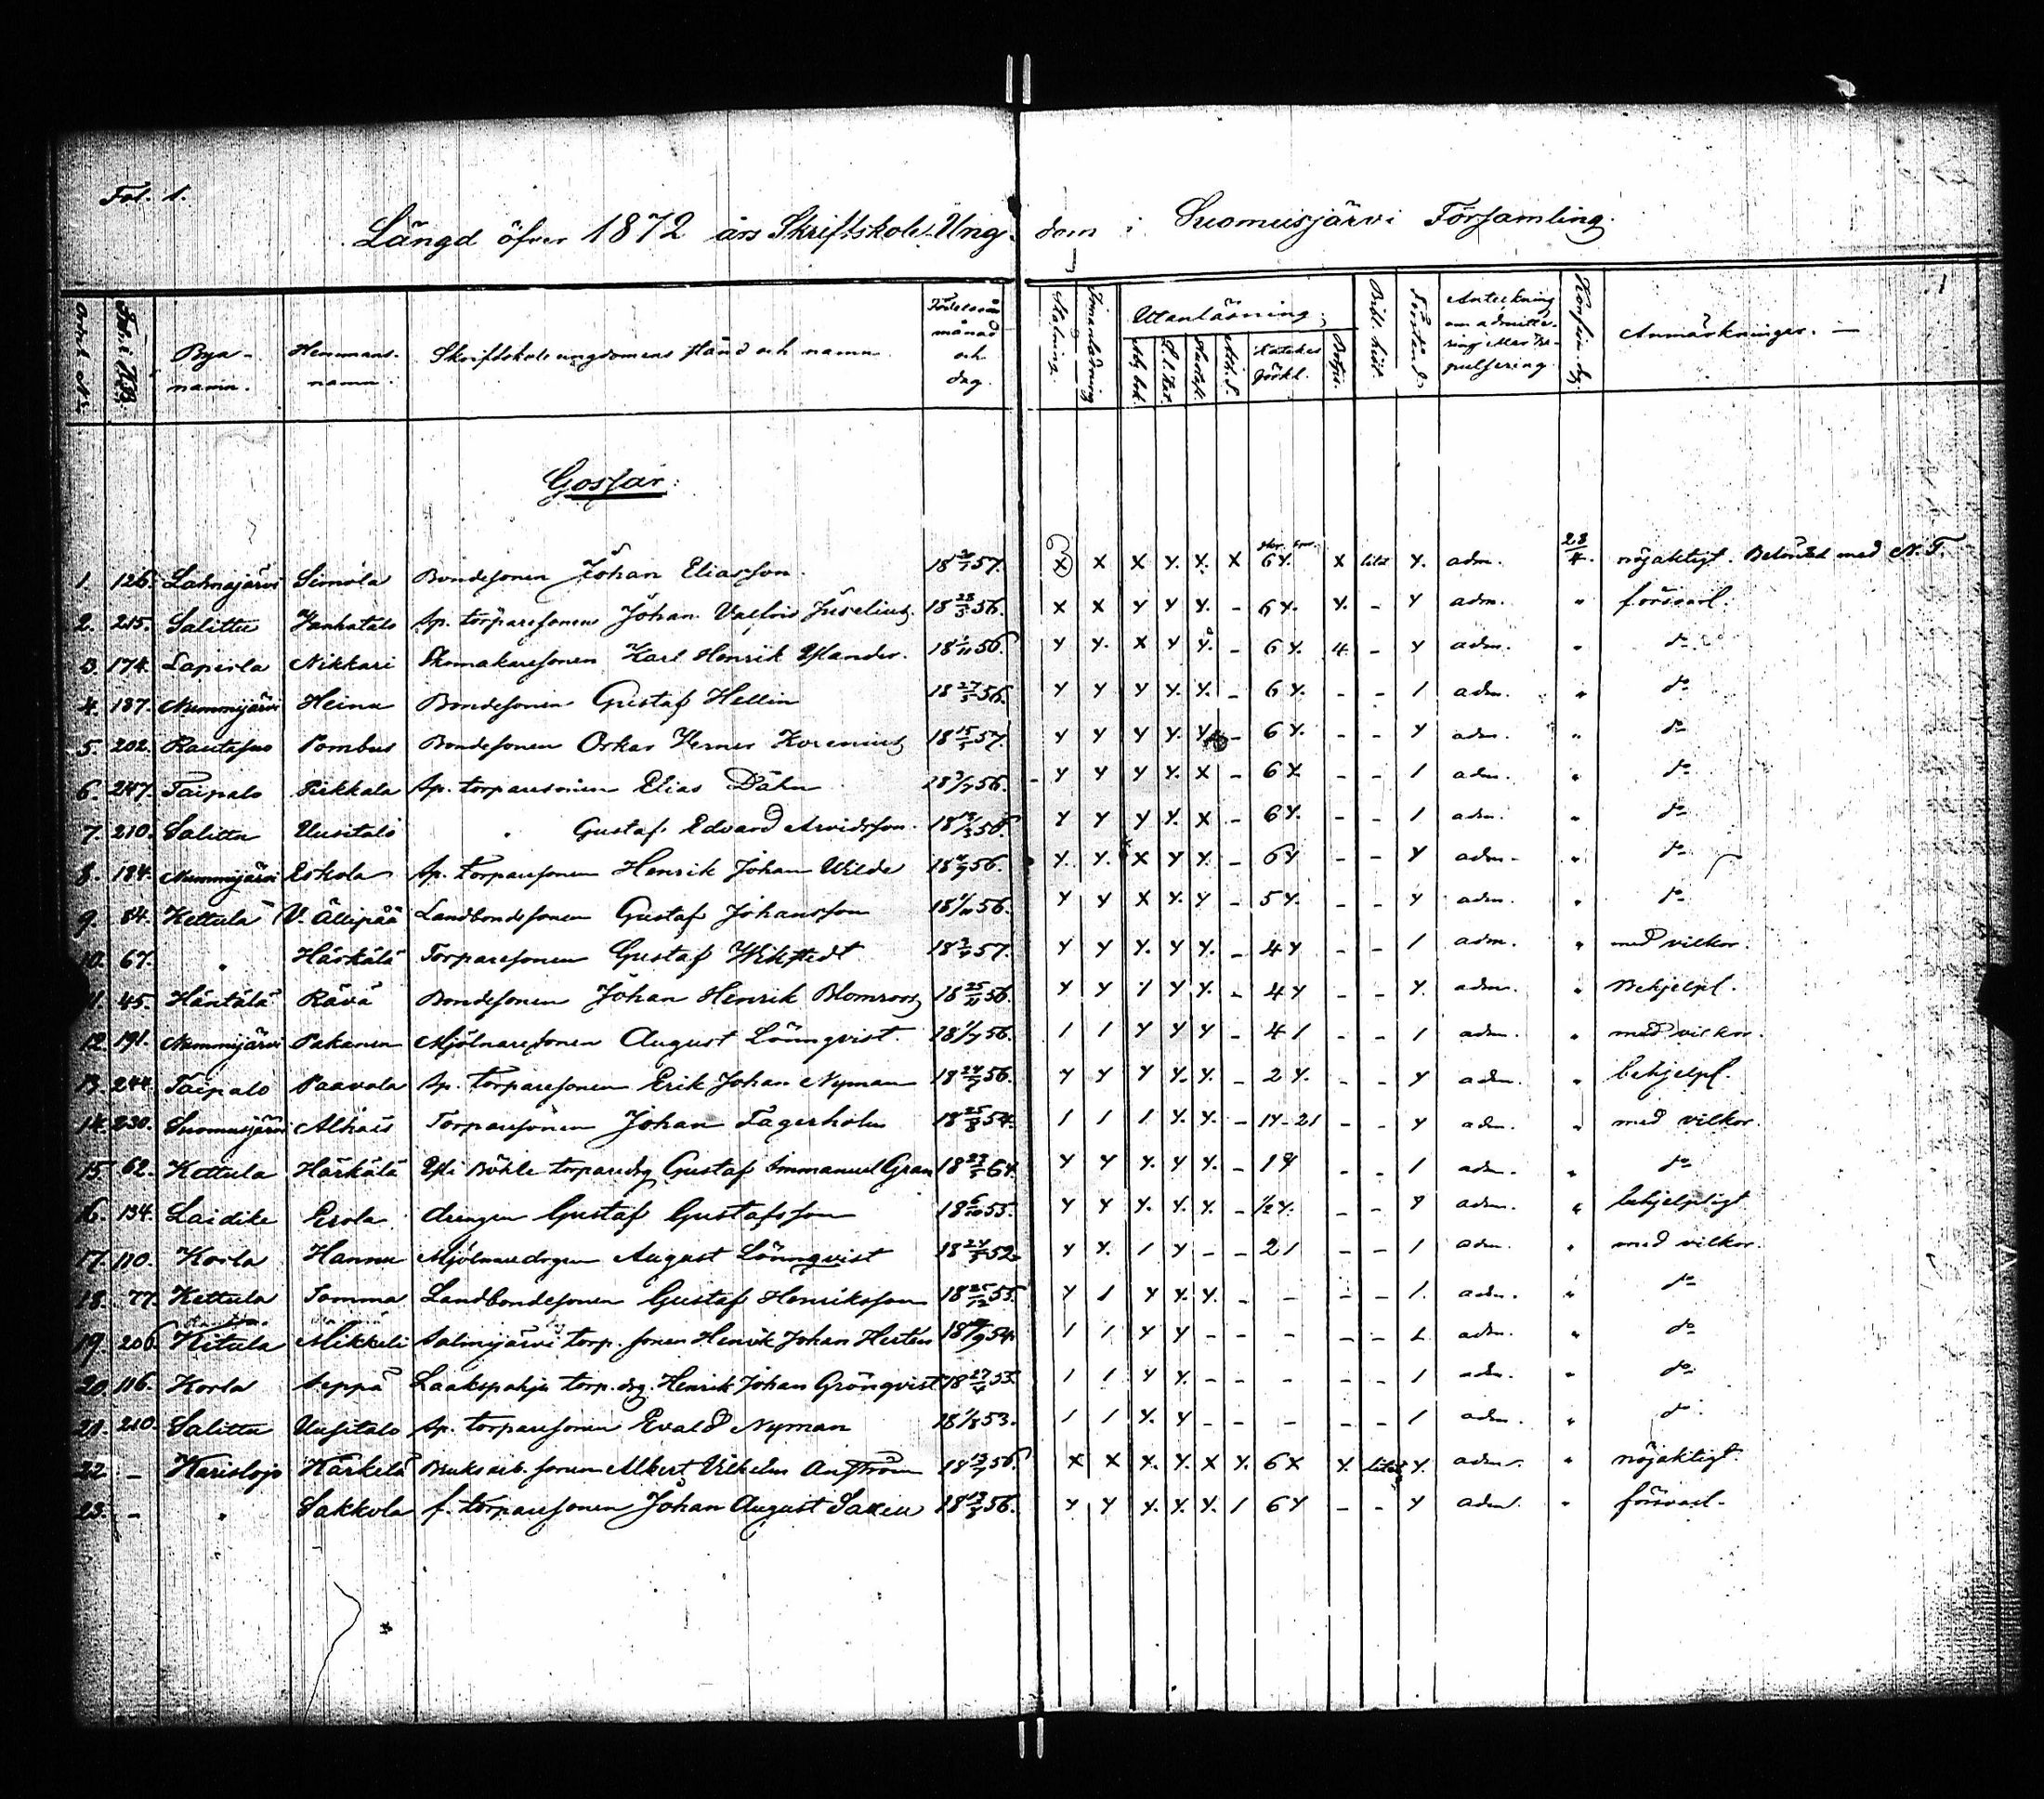 Fol. 1.
Längd öfver 1872 års Skriftskole-Ungdom i Suomusjärvi Församling.
Ordn. No. Fol. i K.B. Bya-namn. Hemmans-namn. Skriftskole ungdomens stånd och namn Födelseår månad och dag. Innanläsning Utanläsning. Abc bok. L. l. Kat. Hustafl. Ath. S. Kateches förkl. Bibl. hist. Förstånd. Anteckning Anmärkningar. —
Gossar:
1. 126. Lahnajärvi Simola Bondesonen Johan Eliasson 57. x x x y. y. x 6 y. x y. adm. 23/4. nöjaktigt. Belönted med N. T.
2. 215. Salittu Vanhatalo Sp. torparesonen Johan Valfrid Juselius 18 23/3 56. x x y y y. - 6 y. y. - y adm. " försvarl.
3. 174. Laperla Nikkari Skomakaresonen Karl Henrik 56. y y. x y y. - 6 y. 4 - y adm. " do
4. 187. Nummijärvi Heinu Bondesonen Gustaf Hellin 18 27/5 56. y y y y. y. - 6 y. - - 1 adm. " do
5. 202. Rautasuo Pombus Bondesonen Oskar Verner Korenius 57. y y y y. y - 6 y. - - y adm. " do
6. 247. Taipalo Pirkkala Sp. torparesonen Elias Dähn 56. y y y y. x - 6 y - - 1 adm. " do
7. 210. Salittu Uusitalo " Gustaf Edvard Arvidsson. 56. y y y y. x - 6 y. - - 1 adm. " do
8. 184. Nummijärvi Eskola Sp. torparesonen Henrik Johan Wilde 56. y. y. x y y. - 6 y - - y adm. " do
9. 84. Kettula V. Ällipää Landbondesonen Gustaf Johansson 56. y y x y. y - 5 y. - - y adm. " do
10. 67. " Härkälä Torparesonen Gustaf Wikstedt 57. y y y. y y. - 4 y - - 1 adm. " med vilkor.
11. 45. Häntälä Rävä Bondesonen Johan Henrik Blomroos 18 25/11 56. y y 1 y y. - 4 y - - y. adm. " Behjelpl.
12. 191. Nummijärvi Pakanen Mjölnaresonen August Lönnqvist. 56. 1 1 y y y - 4 1 - - 1 adm. " med vilkor.
13. 244. Taipalo Paavola Sp. torparesonen Erik Johan Nyman 56. y y y y. y. - 2 y. - - y adm. " behjelpl.
14. 230. Suomusjärvi Alhais Torparesonen Johan Fagerholm 18 25/8 54. 1 1 1 y. y. - 1y - 21 - - y adm. " med vilkor.
15. 62. Kettula Härkälä torparedrg Gustaf Immanuel Gran y y y. y y. - 1 y - - 1 adm. " do
16. 134. Laidike Erola drengen Gustaf Gustafsson 18 6/10 55. y y y. y. y. - 1/2 y. - - y adm. " behjelpligt
17. 110. Korla Hannu Mjölnaredrgen August Lönnqvist 52. y y. 1 y - - 2 1 - - 1 adm. " med vilkor.
18. 77. Kettula Tomma Landbondesonen Gustaf Henriksson 18 25/12 55. y 1 y y. y. - - - - 1. adm. " do
19. 206. Kitula Mikkeli Salmijärvi torp. sonen Henrik Johan Hertén 54. 1 1 y y - - - - - 1 adm. " do
20. 116. Korla Seppä Laakspohja torp. drg. Henrik Johan Grönqvist 55. 1 1 y y. - - - - - 1 adm. " do
21. 210. Salittu Uusitalo Sp. torparesonen Evald Nyman 53. 1 1 y. y - - - - - 1 adm. " do
22. - Karislojo Kärkelä Bruks arb. sonen Albert Vilhelm Angström 56. x x x. y. x y. 6 x y. y. adm. " nöjaktigt.
23. - " Sakkola f. torparesonen Johan August Saxen 56. y y y. y. y. 1 6 y - - y adm. " försvarl.